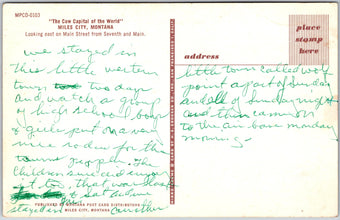 MPCD-0103
"The Cow Capital of the World"
MILES CITY, MONTANA
Looking east on Main Street from Seventh and Main.
we stayed in
this little western
town two days
and watch a group
of high school boys
& girls put on a very
nice rodeo for the
people. The
Children sure did enjoy
it too, that was
stayed in another
MILES CITY, MONTANA
place
stamp
here
address
little town called wolf
point a part of Sunday
and all of Sunday night
and then came on
to the air base monday
morning.